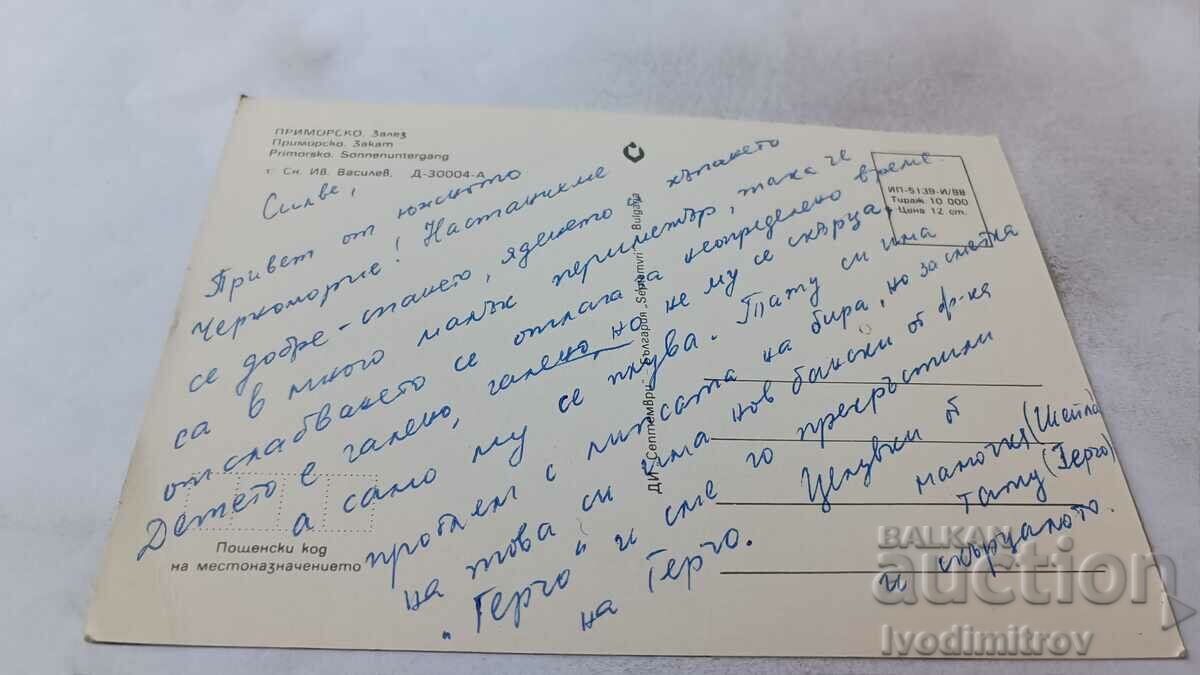 ПРИМОРСКО. Залез
Приморско. Закат
Primorsko. Sonnenuntergang
Сн. Ив. Василев, Д-30004-А
ИП-5139-И/88
Тираж 10 000
Цена 12 ст.
ДИ „Септември" - България „Septemvri" - Bulgaria
Силве,
Привет от южното
Черноморие! Настанихме
се добре - спането, яденето и къпането
са в много малък периметър, така че
отслабването се отлага за неопределено време.
Детето е галено, галено но не му се скърца,
а само му се плува. Тату си има
проблем с липсата на бира, но за сметка
на това си има нов бански от ф-ка
„Герчо" и сме го прекръстили
на Герчо.
Целувки от
маточка (Шейла)
тату (Герчо)
и скърцалото.
Пощенски код
на местоназначението
BALKAN
auction
Ivodimitrov